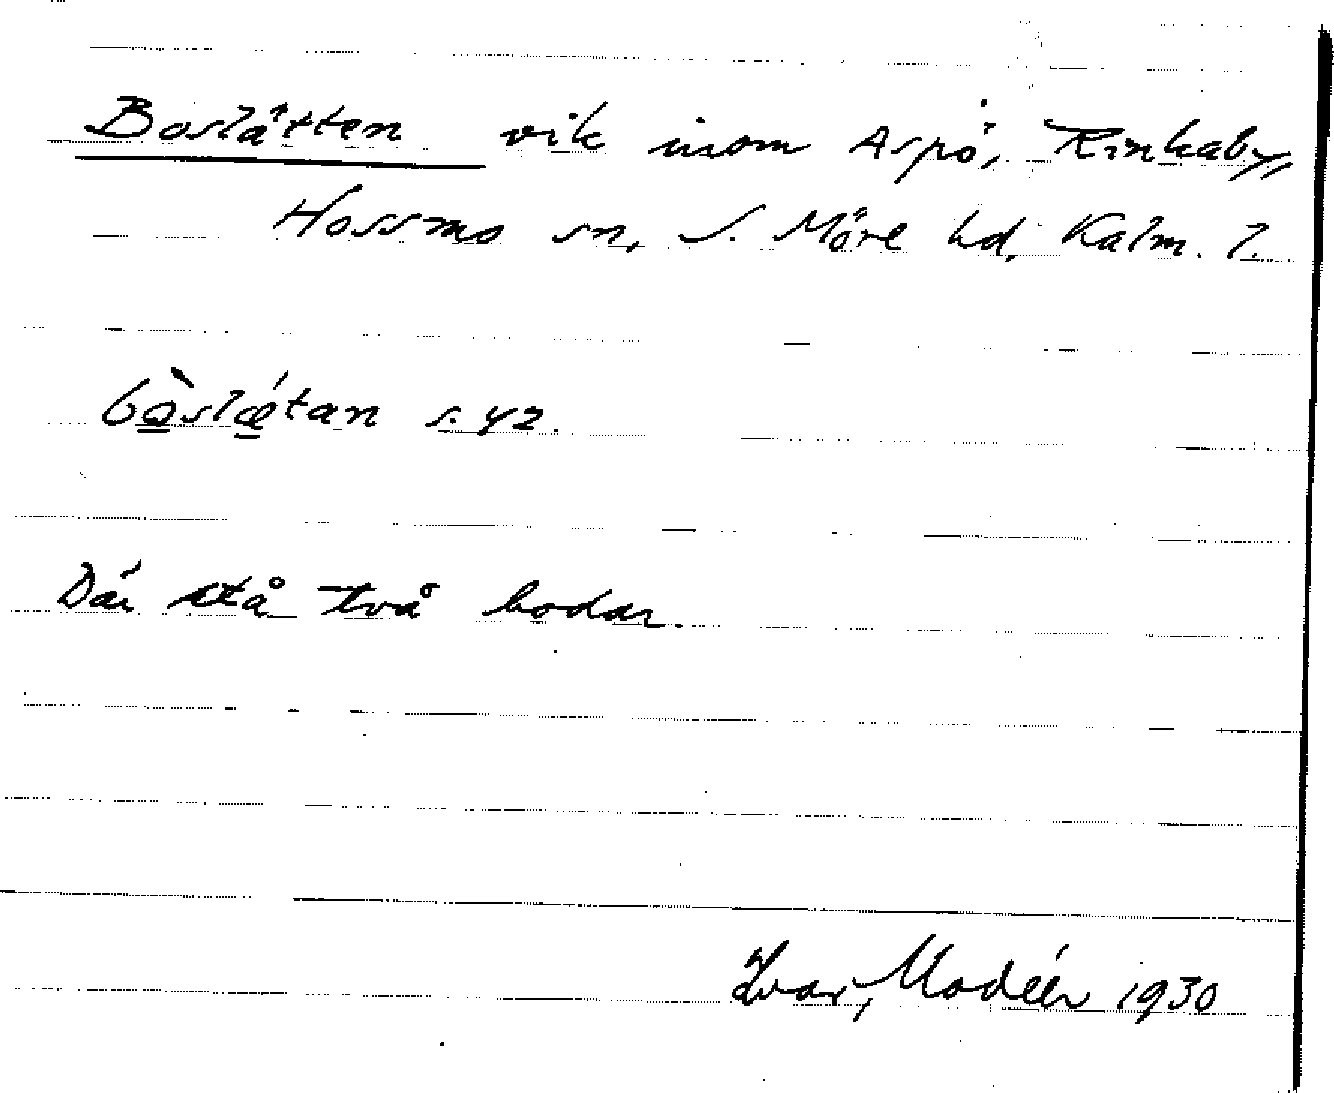 Boslätten vik inom Aspö, Rinkaby,
Hossmo sn, S. Möre hd, Kalm. l.
bòslǽtan s. 42.
Där stå två bodar.
Ivar Modéer 1930